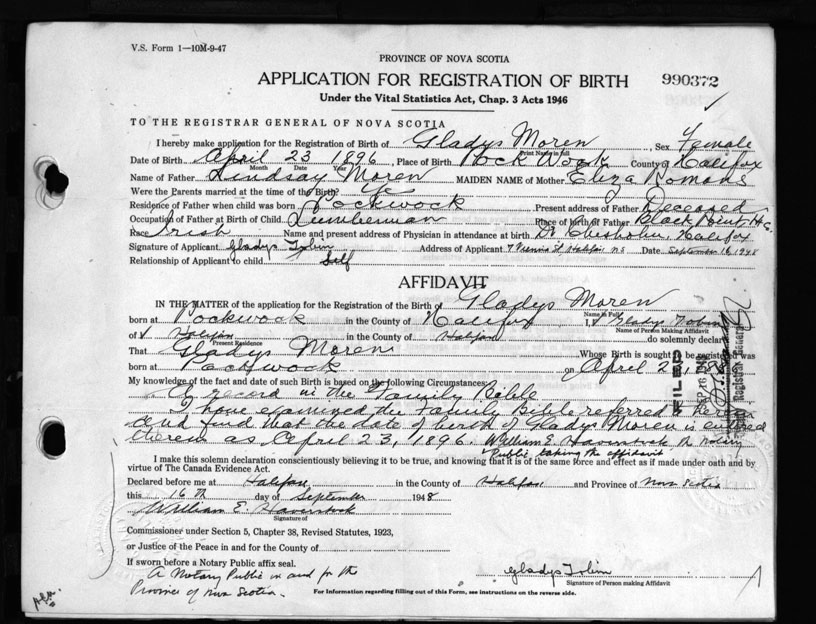 V.S. Form 1—10M-9-47
PROVINCE OF NOVA SCOTIA
APPLICATION FOR REGISTRATION OF BIRTH 990372
Under the Vital Statistics Act, Chap. 3 Acts 1946
TO THE REGISTRAR GENERAL OF NOVA SCOTIA
I hereby make application for the Registration of Birth of Gladys Moren, Sex Female
Print Name in full
Date of Birth April 23 1896, Place of Birth Pockwock County of Halifax
Month Date Year
Name of Father Lindsay Moren MAIDEN NAME of Mother Eliza Romans
Were the Parents married at the time of the Birth? Yes
Residence of Father when child was born Pockwock Present address of Father Deceased
Occupation of Father at Birth of Child Lumberman Place of Birth of Father Black Point
Race Irish Name and present address of Physician in attendance at birth Dr Chisholm, Halifax
Signature of Applicant Gladys Tobin Address of Applicant 7 Halifax N.S. Date September 16, 1948
Relationship of Applicant to child Self
AFFIDAVIT
IN THE MATTER of the application for the Registration of the Birth of Gladys Moren
Name in Full
born at Pockwock in the County of Halifax I, Gladys Tobin
Name of Person Making Affidavit
of Halifax in the County of Halifax do solemnly declare
Present Residence
That Gladys Moren Whose Birth is sought to be registered was
born at Pockwock on April 23, 1896
My knowledge of the fact and date of such Birth is based on the following Circumstances:
A record in the Family Bible
I have examined the Family Bible referred to herein
and find that the date of birth of Gladys Moren is entered
therein as April 23, 1896. William E. Haverstock the notary
Public taking the affidavit
I make this solemn declaration conscientiously believing it to be true, and knowing that it is of the same force and effect as if made under oath and by
virtue of The Canada Evidence Act.
Declared before me at Halifax in the County of Halifax and Province of Nova Scotia
this 16th day of September 1948
William E. Haverstock
Signature of
Commissioner under Section 5, Chapter 38, Revised Statutes, 1923,
or Justice of the Peace in and for the County of
If sworn before a Notary Public affix seal.
A Notary Public in and for the
Province of Nova Scotia.
Gladys Tobin
Signature of Person making Affidavit
For Information regarding filling out of this Form, see instructions on the reverse side.
FILED
Deputy Registrar General